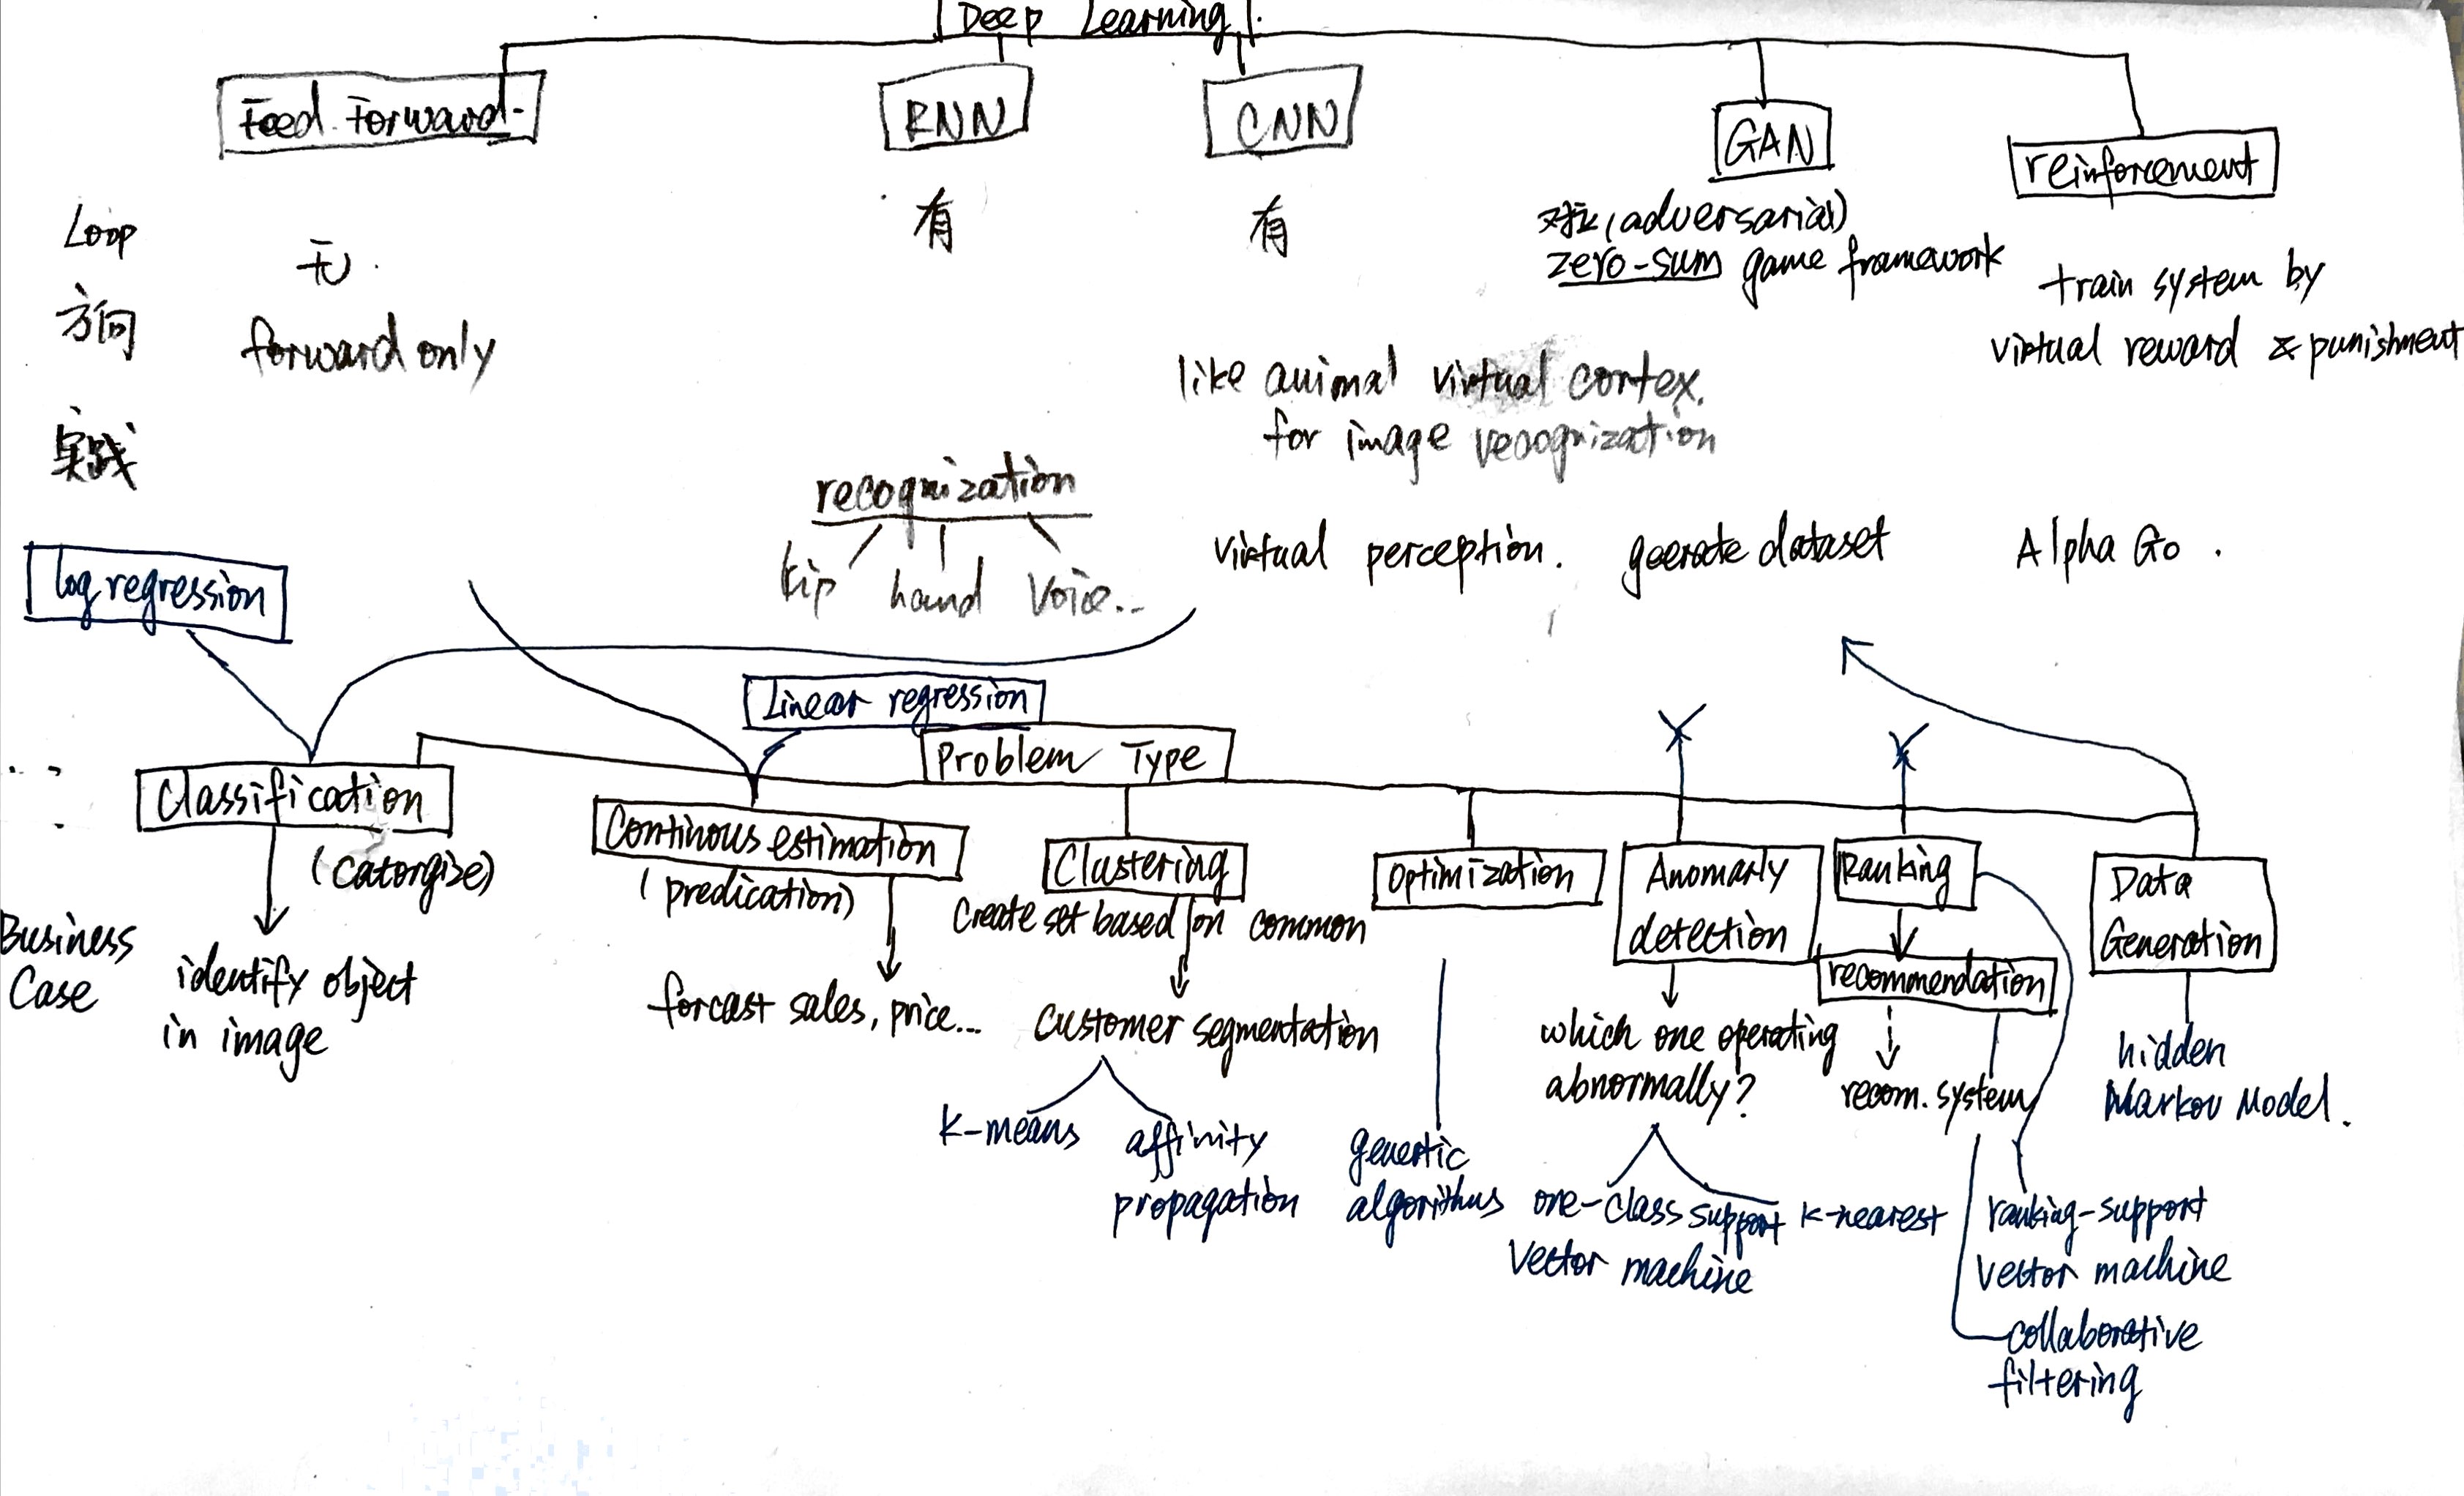 Deep Learning
Feed Forward
RNN
CNN
GAN
reinforcement
Loop
无
有
有
(adversarial)
zero-sum game framework
train system by
virtual reward & punishment
方向
forward only
like animal virtual cortex.
for image recognization
实践
recognization
hand
voice...
virtual perception.
geerate dataset
Alpha Go.
log regression
Linear regression
Problem Type
Classification
(catorgize)
Continous estimation
(predication)
Clustering
Create set based on common
Optimization
Anomarly
detection
Ranking
recommendation
Data
Generation
Business
Case
identify object
in image
forcast sales, price...
customer segmentation
which one operating
abnormally?
recom. system
hidden
Markov Model.
k-means
affinity
propagation
genertic
algorithms
one-class support
vector machine
k-nearest
ranking-support
vector machine
collaborative
filtering